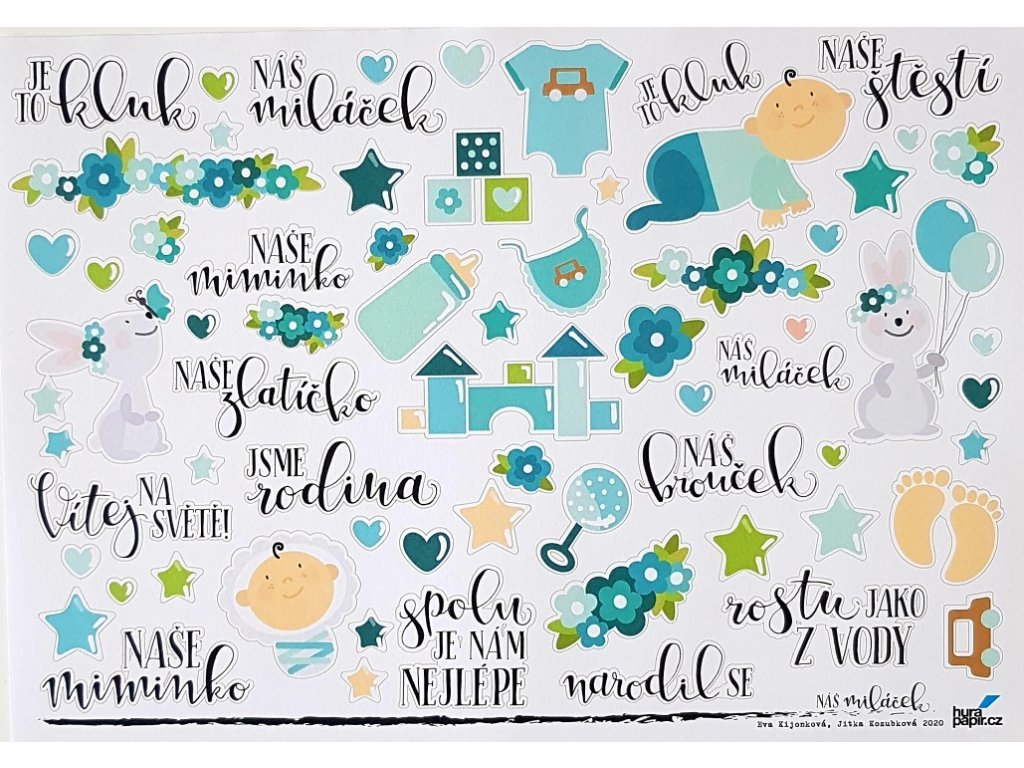 JE
TO kluk
NÁŠ
miláček
JE
TO kluk
NAŠE
štěstí
NAŠE
miminko
NAŠE
zlatíčko
NÁŠ
miláček
Vítej NA
SVĚTĚ!
JSME
rodina
NÁŠ
brouček
NAŠE
miminko
spolu
JE NÁM
NEJLÉPE
rostu JAKO
Z VODY
narodil SE
NÁŠ miláček
Eva Kijonková, Jitka Kozubková 2020
hura
papir.cz